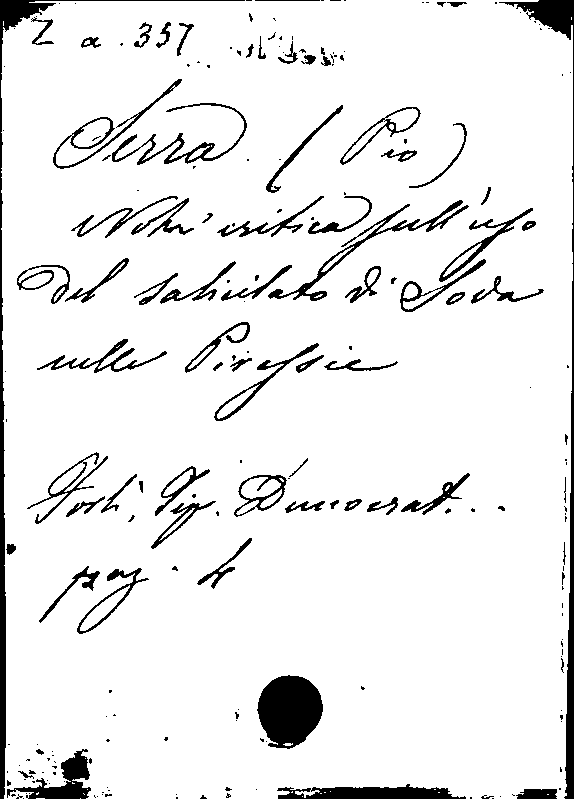 Z a. 357
Serra (Pio)
Nota critica sull'uso
del salicilato di Soda
nelle Piressie
Forlì, Tip. Democrat...
pag. 4